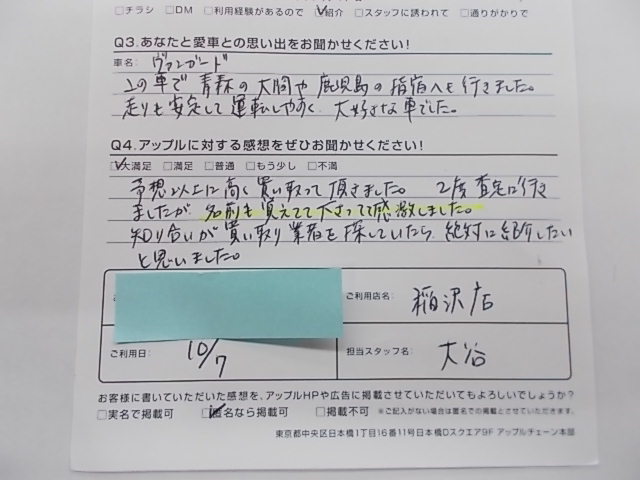 □チラシ □DM □利用経験があるので ☑紹介 □スタッフに誘われて □通りがかりで
Q3.あなたと愛車との思い出をお聞かせください!
車名: ヴァンガード
この車で青森の大間や鹿児島の指宿へも行きました。
走りも安定して運転しやすく、大好きな車でした。
Q4.アップルに対する感想をぜひお聞かせください!
☑大満足 □満足 □普通 □もう少し □不満
予想以上に高く買い取って頂きました。2度査定に行き
ましたが、名前も覚えてて下さってて感激しました。
知り合いが買い取り業者を探していたら、絶対に紹介したい
と思いました。
ご利用店名: 稲沢店
ご利用日: 10/7
担当スタッフ名: 大谷
お客様に書いていただいた感想を、アップルHPや広告に掲載させていただいてもよろしいでしょうか?
□実名で掲載可 ☑匿名なら掲載可 □掲載不可 ※ご記入がない場合は匿名での掲載とさせていただきます。
東京都中央区日本橋1丁目16番11号日本橋Dスクエア9F アップルチェーン本部